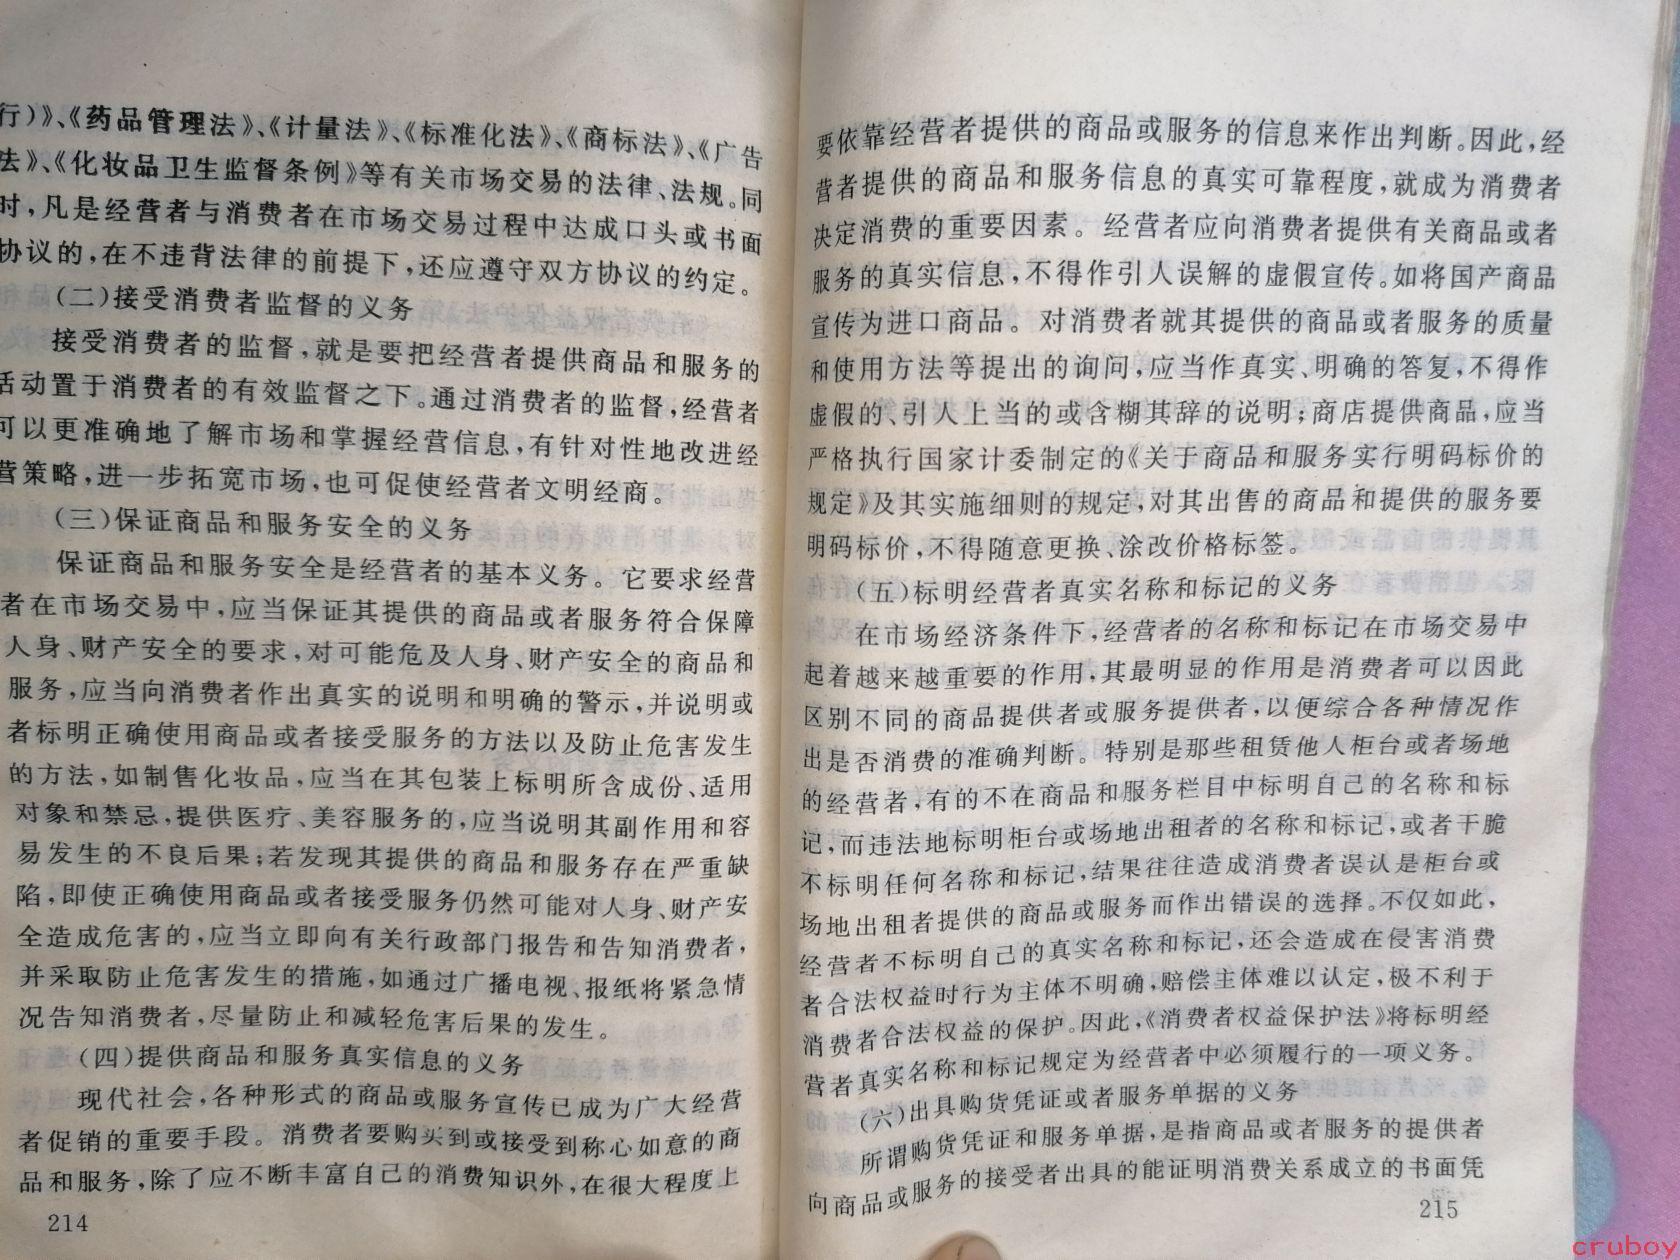 行)》、《药品管理法》、《计量法》、《标准化法》、《商标法》、《广告
法》、《化妆品卫生监督条例》等有关市场交易的法律、法规。同
时,凡是经营者与消费者在市场交易过程中达成口头或书面
协议的,在不违背法律的前提下,还应遵守双方协议的约定。
(二)接受消费者监督的义务
接受消费者的监督,就是要把经营者提供商品和服务的
活动置于消费者的有效监督之下。通过消费者的监督,经营者
可以更准确地了解市场和掌握经营信息,有针对性地改进经
营策略,进一步拓宽市场,也可促使经营者文明经商。
(三)保证商品和服务安全的义务
保证商品和服务安全是经营者的基本义务。它要求经营
者在市场交易中,应当保证其提供的商品或者服务符合保障
人身、财产安全的要求,对可能危及人身、财产安全的商品和
服务,应当向消费者作出真实的说明和明确的警示,并说明或
者标明正确使用商品或者接受服务的方法以及防止危害发生
的方法,如制售化妆品,应当在其包装上标明所含成份、适用
对象和禁忌,提供医疗、美容服务的,应当说明其副作用和容
易发生的不良后果;若发现其提供的商品和服务存在严重缺
陷,即使正确使用商品或者接受服务仍然可能对人身、财产安
全造成危害的,应当立即向有关行政部门报告和告知消费者,
并采取防止危害发生的措施,如通过广播电视、报纸将紧急情
况告知消费者,尽量防止和减轻危害后果的发生。
(四)提供商品和服务真实信息的义务
现代社会,各种形式的商品或服务宣传已成为广大经营
者促销的重要手段。消费者要购买到或接受到称心如意的商
品和服务,除了应不断丰富自己的消费知识外,在很大程度上
214
要依靠经营者提供的商品或服务的信息来作出判断。因此,经
营者提供的商品和服务信息的真实可靠程度,就成为消费者
决定消费的重要因素。经营者应向消费者提供有关商品或者
服务的真实信息,不得作引人误解的虚假宣传。如将国产商品
宣传为进口商品。对消费者就其提供的商品或者服务的质量
和使用方法等提出的询问,应当作真实、明确的答复,不得作
虚假的、引人上当的或含糊其辞的说明;商店提供商品,应当
严格执行国家计委制定的《关于商品和服务实行明码标价的
规定》及其实施细则的规定,对其出售的商品和提供的服务要
明码标价,不得随意更换、涂改价格标签。
(五)标明经营者真实名称和标记的义务
在市场经济条件下,经营者的名称和标记在市场交易中
起着越来越重要的作用,其最明显的作用是消费者可以因此
区别不同的商品提供者或服务提供者,以便综合各种情况作
出是否消费的准确判断。特别是那些租赁他人柜台或者场地
的经营者,有的不在商品和服务栏目中标明自己的名称和标
记,而违法地标明柜台或场地出租者的名称和标记,或者干脆
不标明任何名称和标记,结果往往造成消费者误认是柜台或
场地出租者提供的商品或服务而作出错误的选择。不仅如此,
经营者不标明自己的真实名称和标记,还会造成在侵害消费
者合法权益时行为主体不明确,赔偿主体难以认定,极不利于
消费者合法权益的保护。因此,《消费者权益保护法》将标明经
营者真实名称和标记规定为经营者中必须履行的一项义务。
(六)出具购货凭证或者服务单据的义务
所谓购货凭证和服务单据,是指商品或者服务的提供者
向商品或服务的接受者出具的能证明消费关系成立的书面凭
215
cruboy